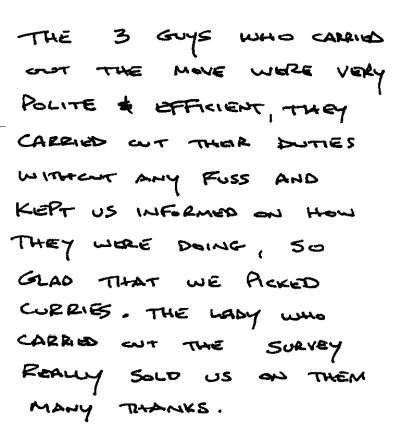 THE 3 GUYS WHO CARRIED
OUT THE MOVE WERE VERY
POLITE & EFFICIENT, THEY
CARRIED OUT THEIR DUTIES
WITHOUT ANY FUSS AND
KEPT US INFORMED ON HOW
THEY WERE DOING, SO
GLAD THAT WE PICKED
CURRIES. THE LADY WHO
CARRIED OUT THE SURVEY
REALLY SOLD US ON THEM
MANY THANKS.